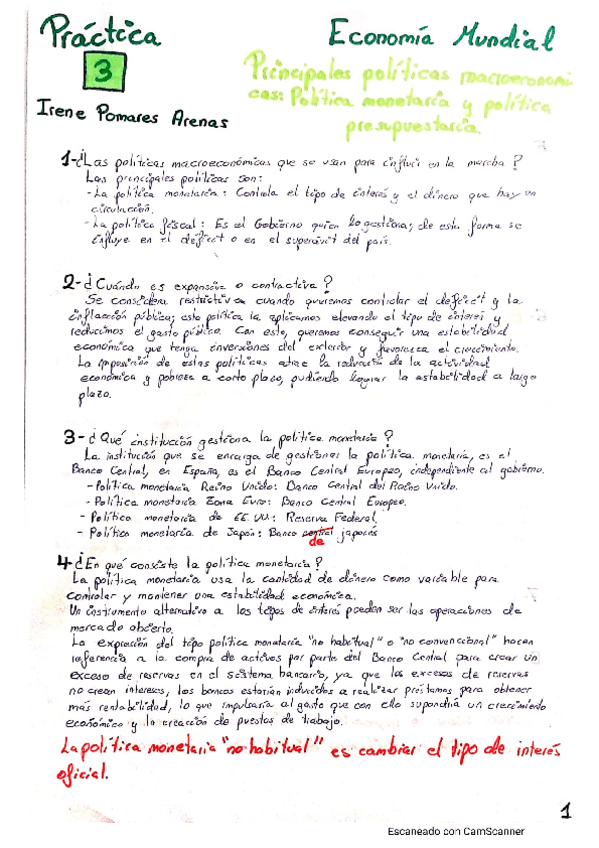 Práctica
3
Economía Mundial
Principales políticas macroeconomi
cas: Política monetaria y política
presupuestaria.
Irene Pomares Arenas
1-¿Las políticas macroeconómicas que se usan para influir en la marcha?
Las principales políticas son:
- La política monetaria: Controla el tipo de interés y el dinero que hay en
circulación.
- La política fiscal: Es el Gobierno quien lo gestiona; de esta forma se
influye en el déficit o en el superávit del país.
2-¿Cuándo es expansiva o contractiva?
Se considera restrictiva cuando queremos controlar el deficit y la
inflacción pública; esta política la aplicamos elevando el tipo de interés y
reducimos el gasto público. Con esto, queremos conseguir una estabilidad
económica que tenga inversiones del exterior y favorezca el crecimiento.
La imposición de estas políticas atrae la reducción de la actividad
económica y pobreza a corto plazo, pudiendo lograr la estabilidad a largo
plazo.
3-¿Qué institución gestiona la política monetaria?
La institución que se encarga de gestionar la política monetaria, es el
Banco Central, en España, es el Banco Central Europeo, independiente al gobierno.
- Política monetaria Reino Unido: Banco Central del Reino Unido.
- Política monetaria Zona Euro: Banco Central Europeo.
- Política monetaria de EE.UU.: Reserva Federal.
- Política monetaria de Japón: Banco central japonés
de
4-¿En qué consiste la política monetaria?
La política monetaria usa la cantidad de dinero como variable para
controlar y mantener una estabilidad económica.
Un instrumento alternativo a los tipos de interés pueden ser las operaciones de
mercado abierto.
La expresión del tipo política monetaria "no habitual" o "no convencional" hacen
referencia a la compra de activos por parte del Banco Central para crear un
exceso de reservas en el sistema bancario, ya que los excesos de reservas
no crean intereses, los bancos estarían inducidos a realizar préstamos para obtener
más rentabilidad, lo que impulsaría al gasto que con ello supondría un crecimiento
económico y la creación de puestos de trabajo.
La política monetaria "no habitual" es cambiar el tipo de interés
oficial.
1
Escaneado con CamScanner